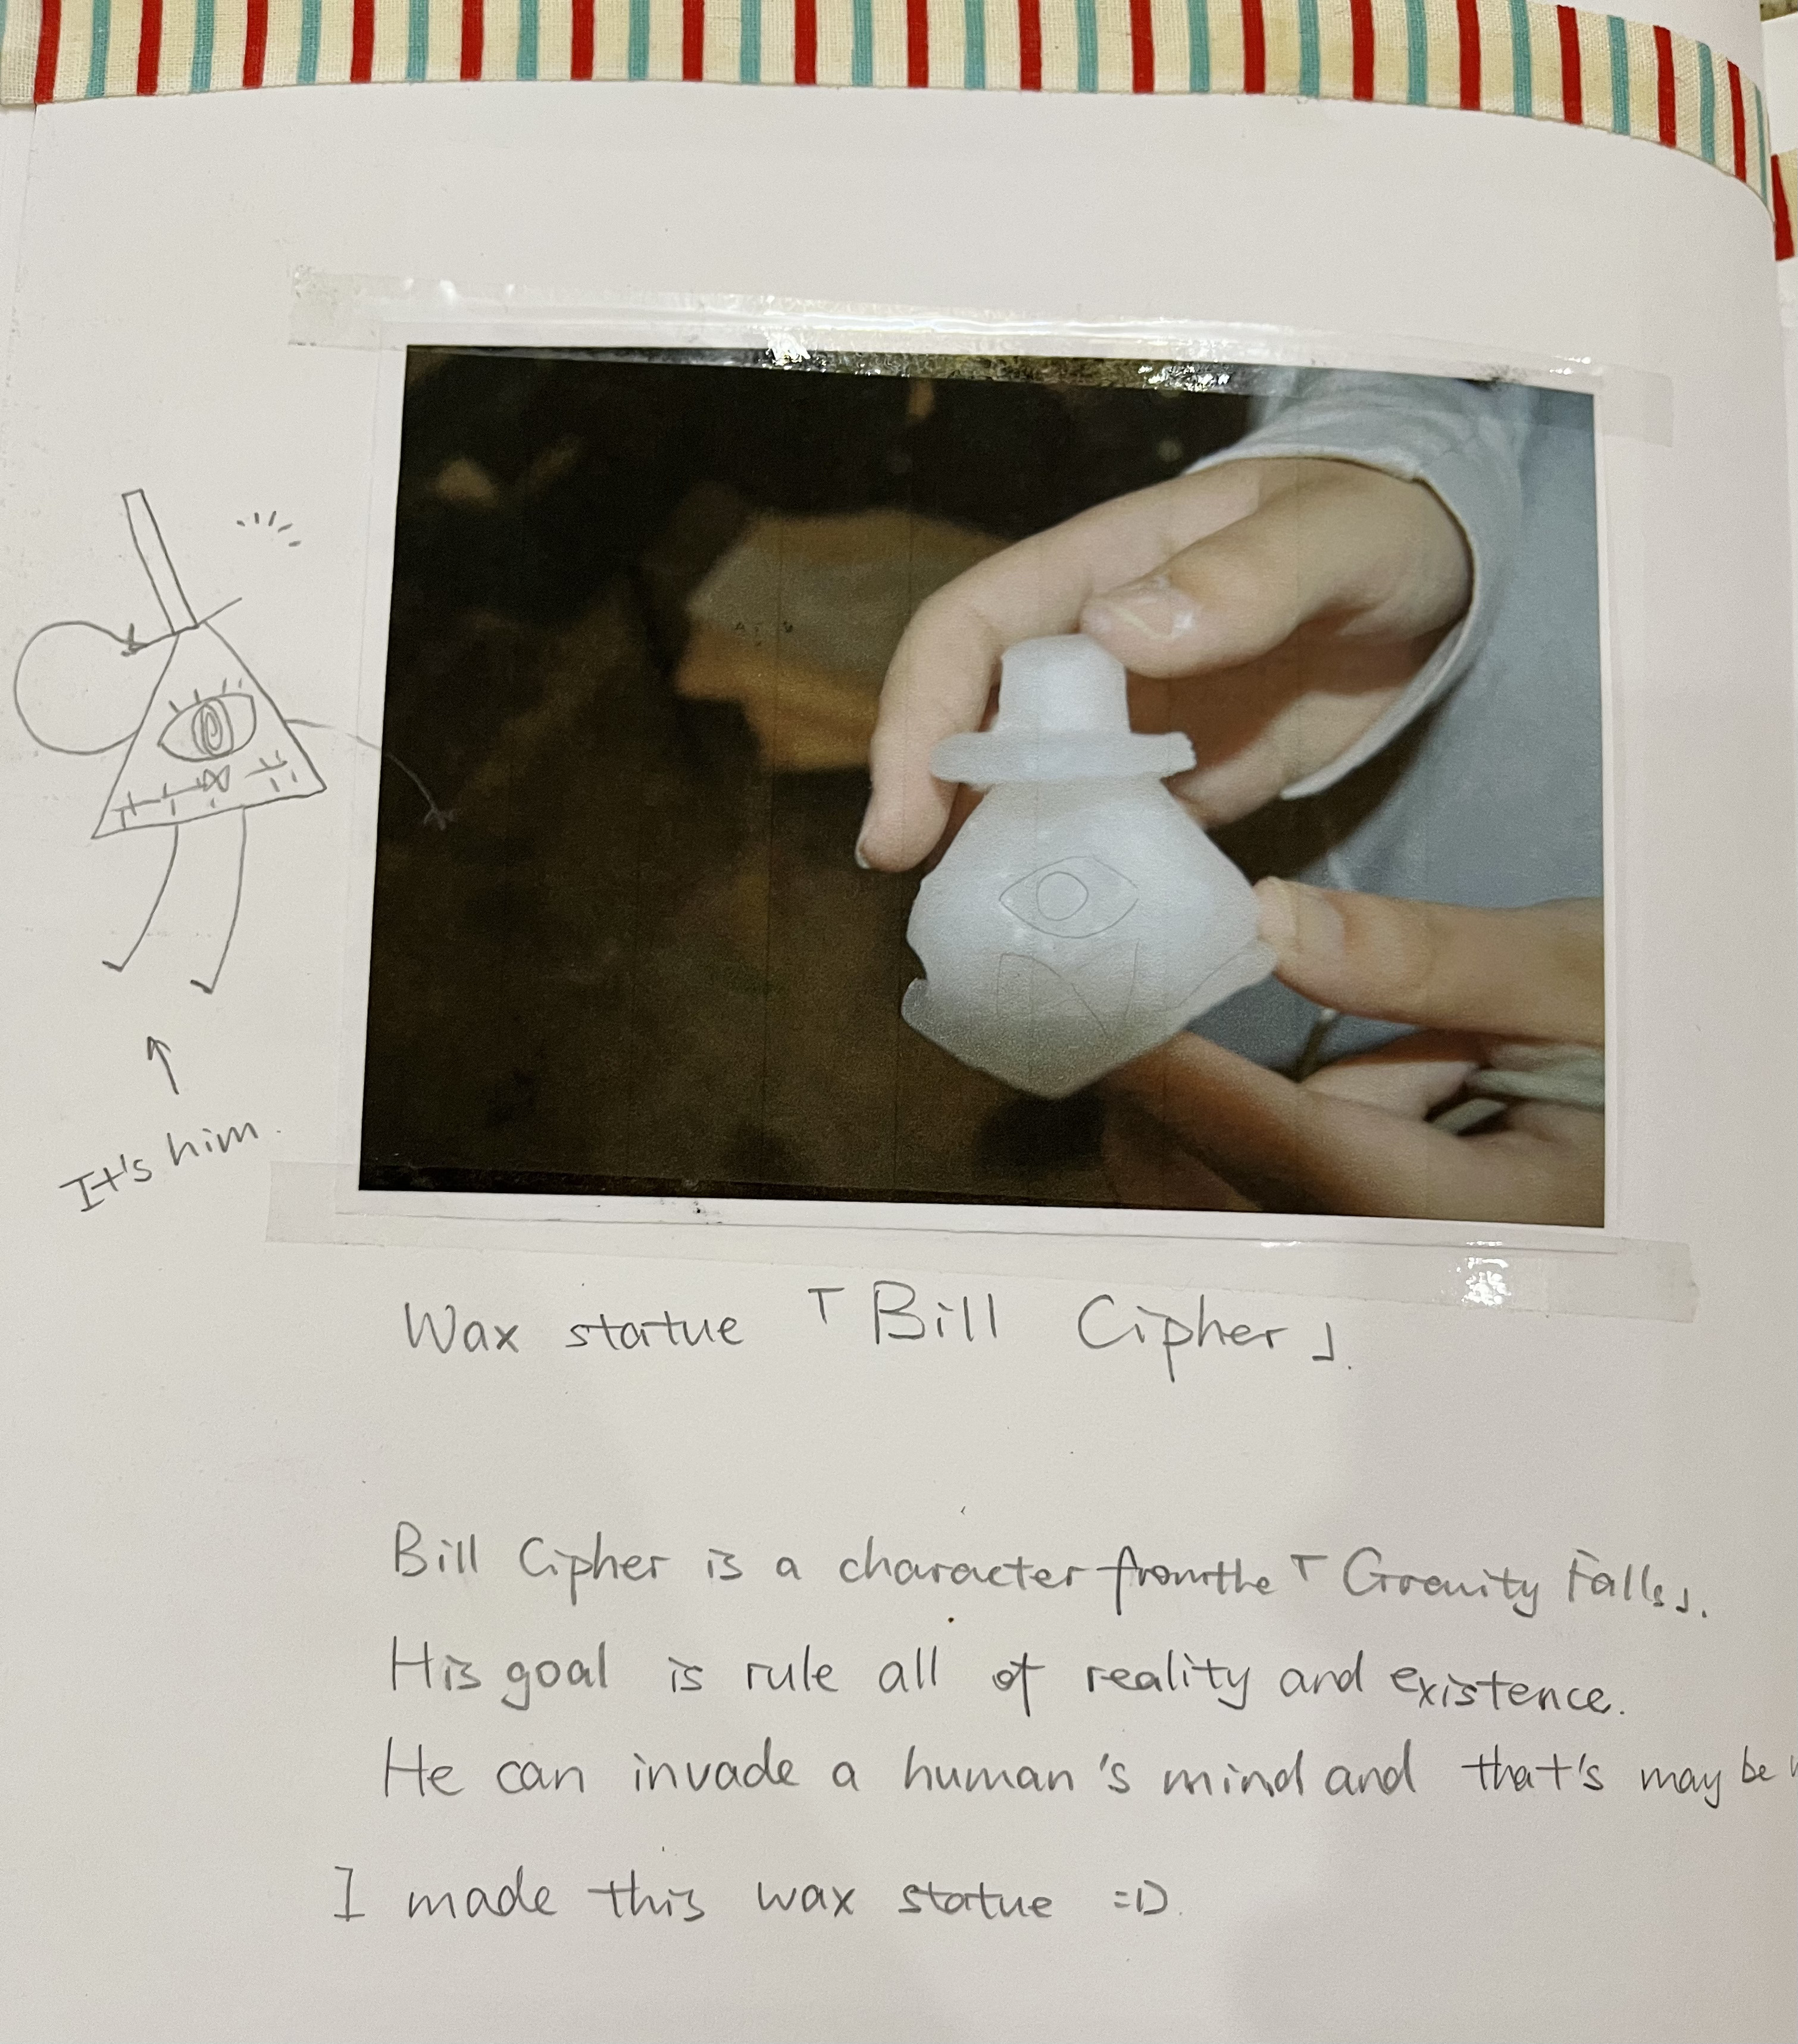 It's him.
Wax statue 「Bill Cipher」.
Bill Cipher is a character from the 「Gravity Falls」.
His goal is rule all of reality and existence.
He can invade a human's mind and that's may be
I made this wax statue =D.